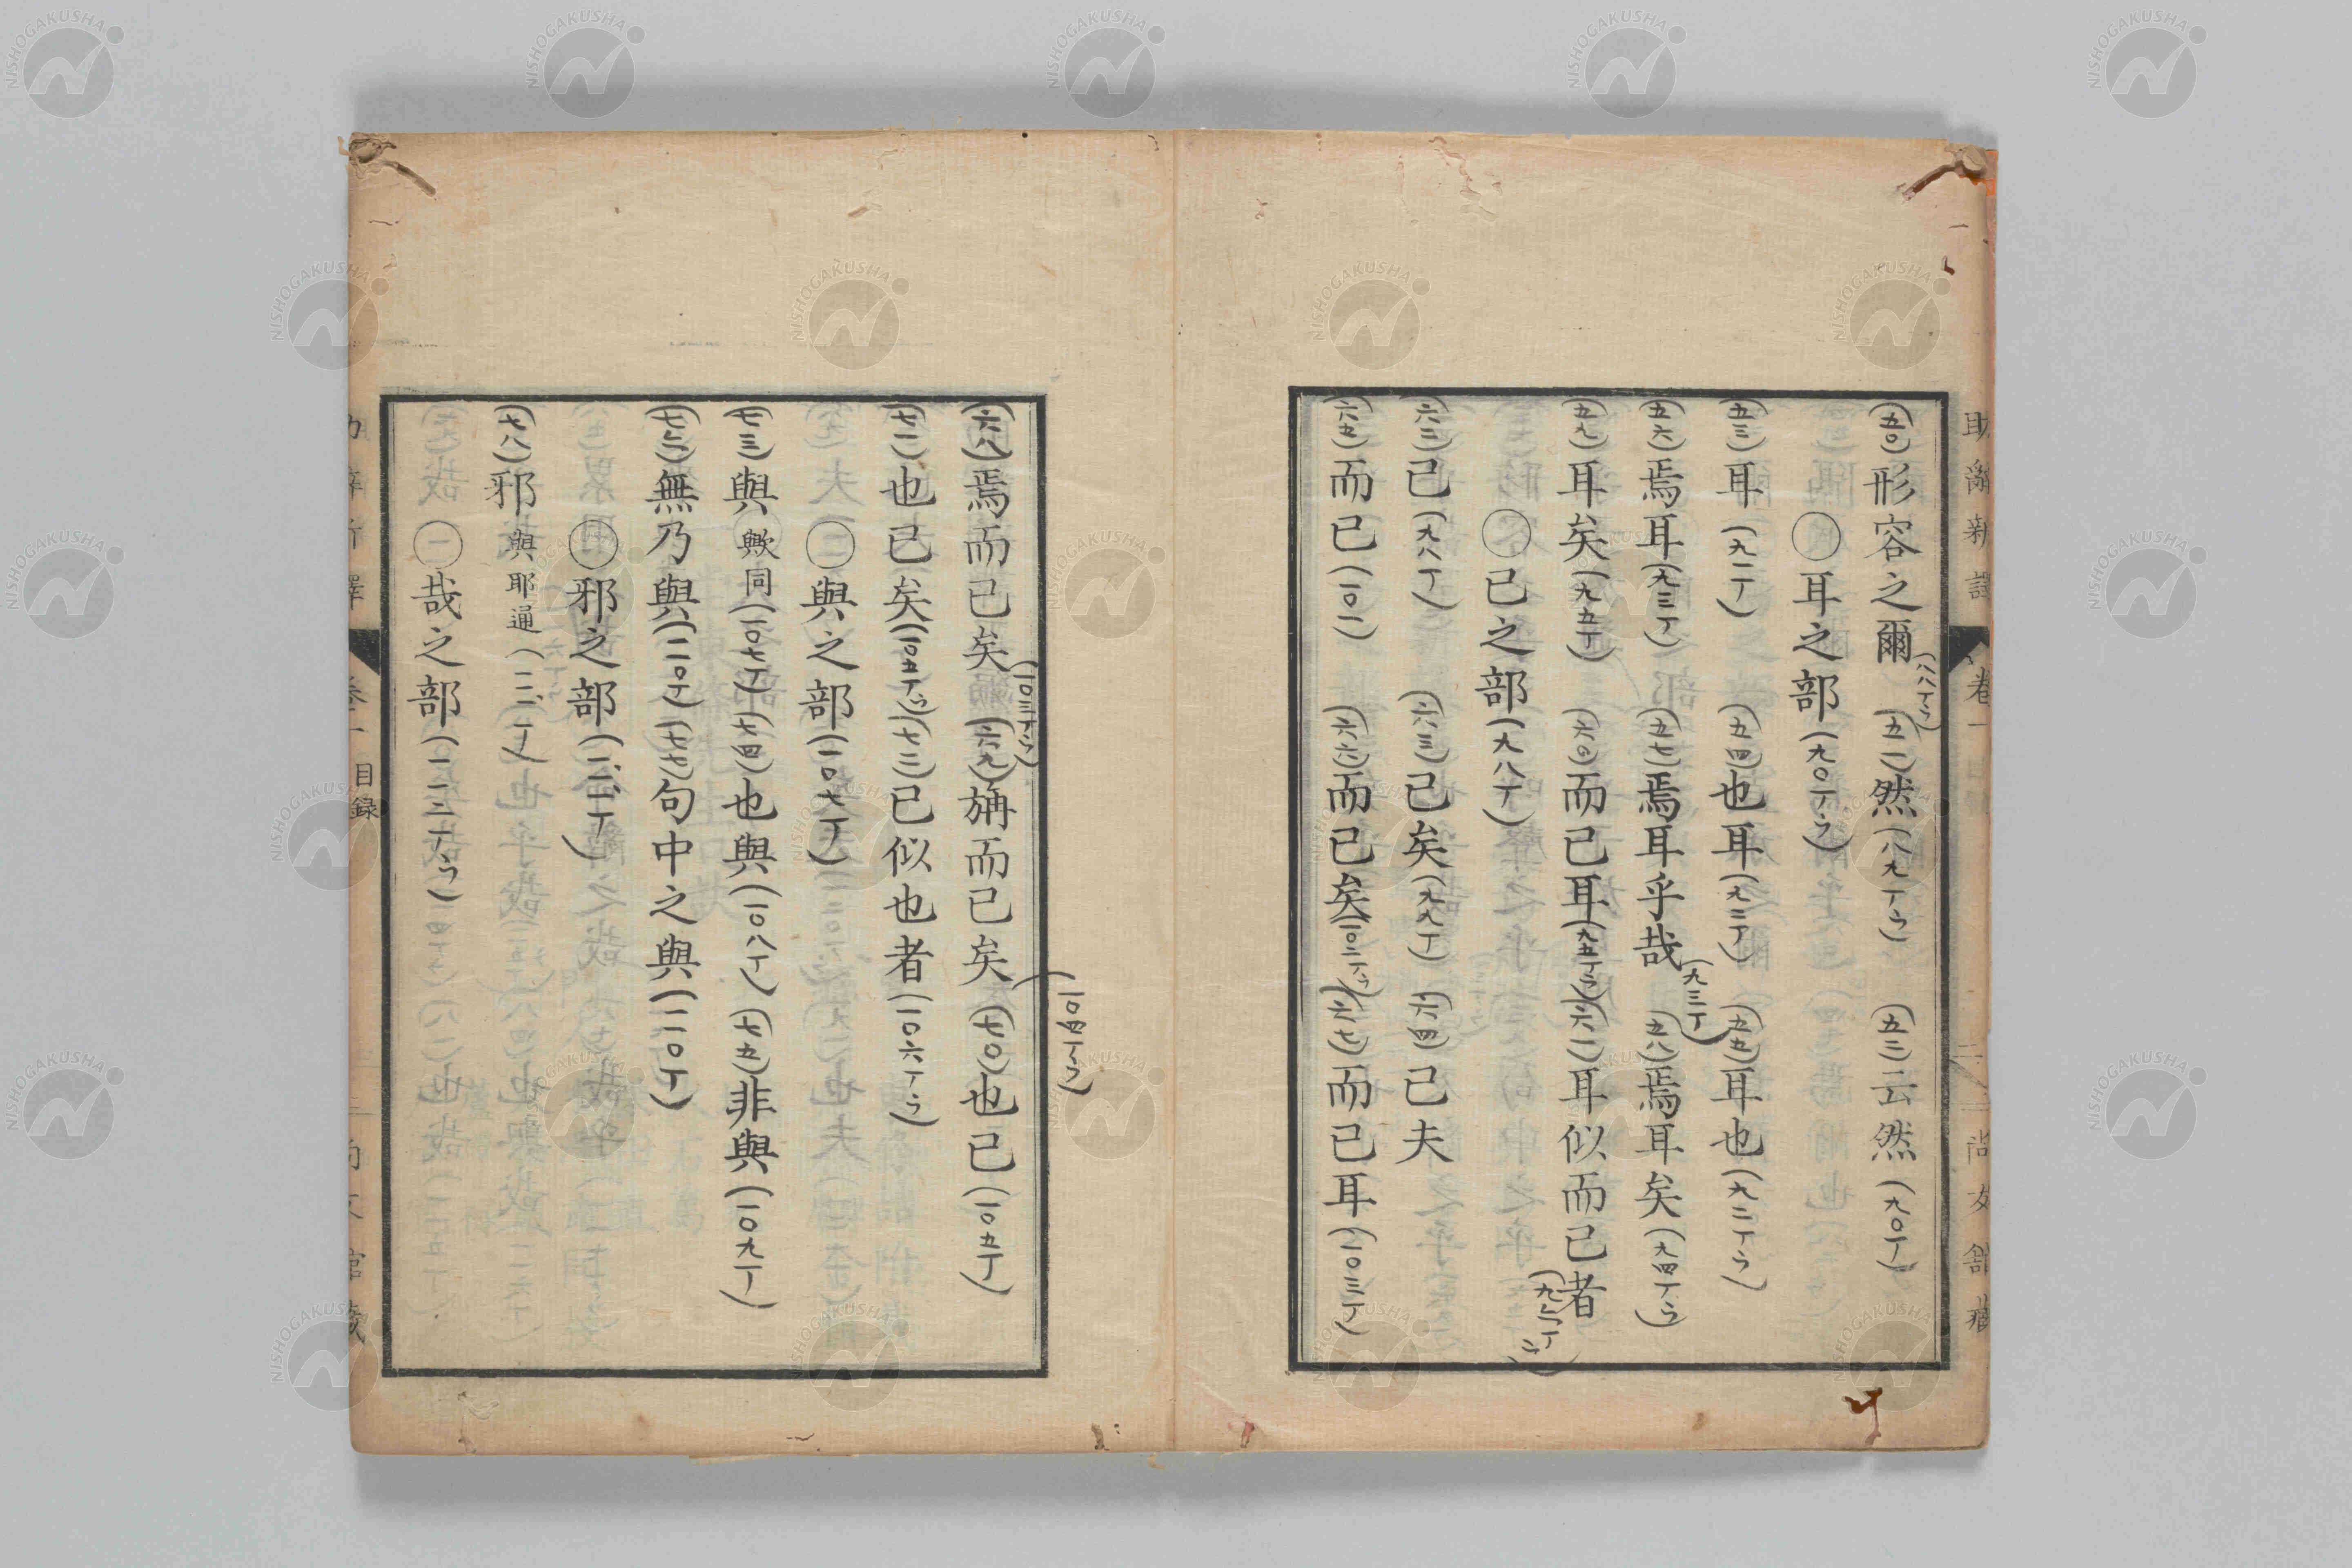 助辭新譯 卷一 尚友館藏
(五〇)形容之爾(八八丁ウ) (五一)然(八九丁ウ) (五二)云然(九〇丁)
〇耳之部(九〇丁ウ)
(五三)耳(九一丁) (五四)也耳(九二丁) (五五)耳也(九二丁ウ)
(五六)焉耳(九三丁) (五七)焉耳乎哉(九三丁) (五八)焉耳矣(九四丁ウ)
(五九)耳矣(九五丁) (六〇)而已耳(九五丁ウ) (六一)耳似而已者
〇已之部(九八丁)
(六二)已(九八丁) (六三)已矣(九九丁) (六四)已夫
(六五)而已(一〇一) (六六)而已矣(一〇二丁ウ) (六七)而已耳(一〇三丁)
(六八)焉而已矣(一〇三丁ウ) (六九)旃而已矣(一〇四丁ウ) (七〇)也已(一〇五丁)
(七一)也已矣(一〇五丁ウ) (七二)已似也者(一〇六丁ウ)
〇與之部(一〇七丁)
(七三)與 與歟同(一〇七丁) (七四)也與(一〇八丁) (七五)非與(一〇九丁)
(七六)無乃與(一一〇丁) (七七)句中之與(一一〇丁)
〇邪之部(一一一丁)
(七八)邪 與耶通(一一一丁)
〇哉之部(一一三丁ウ)
目録
NISHOGAKUSHA